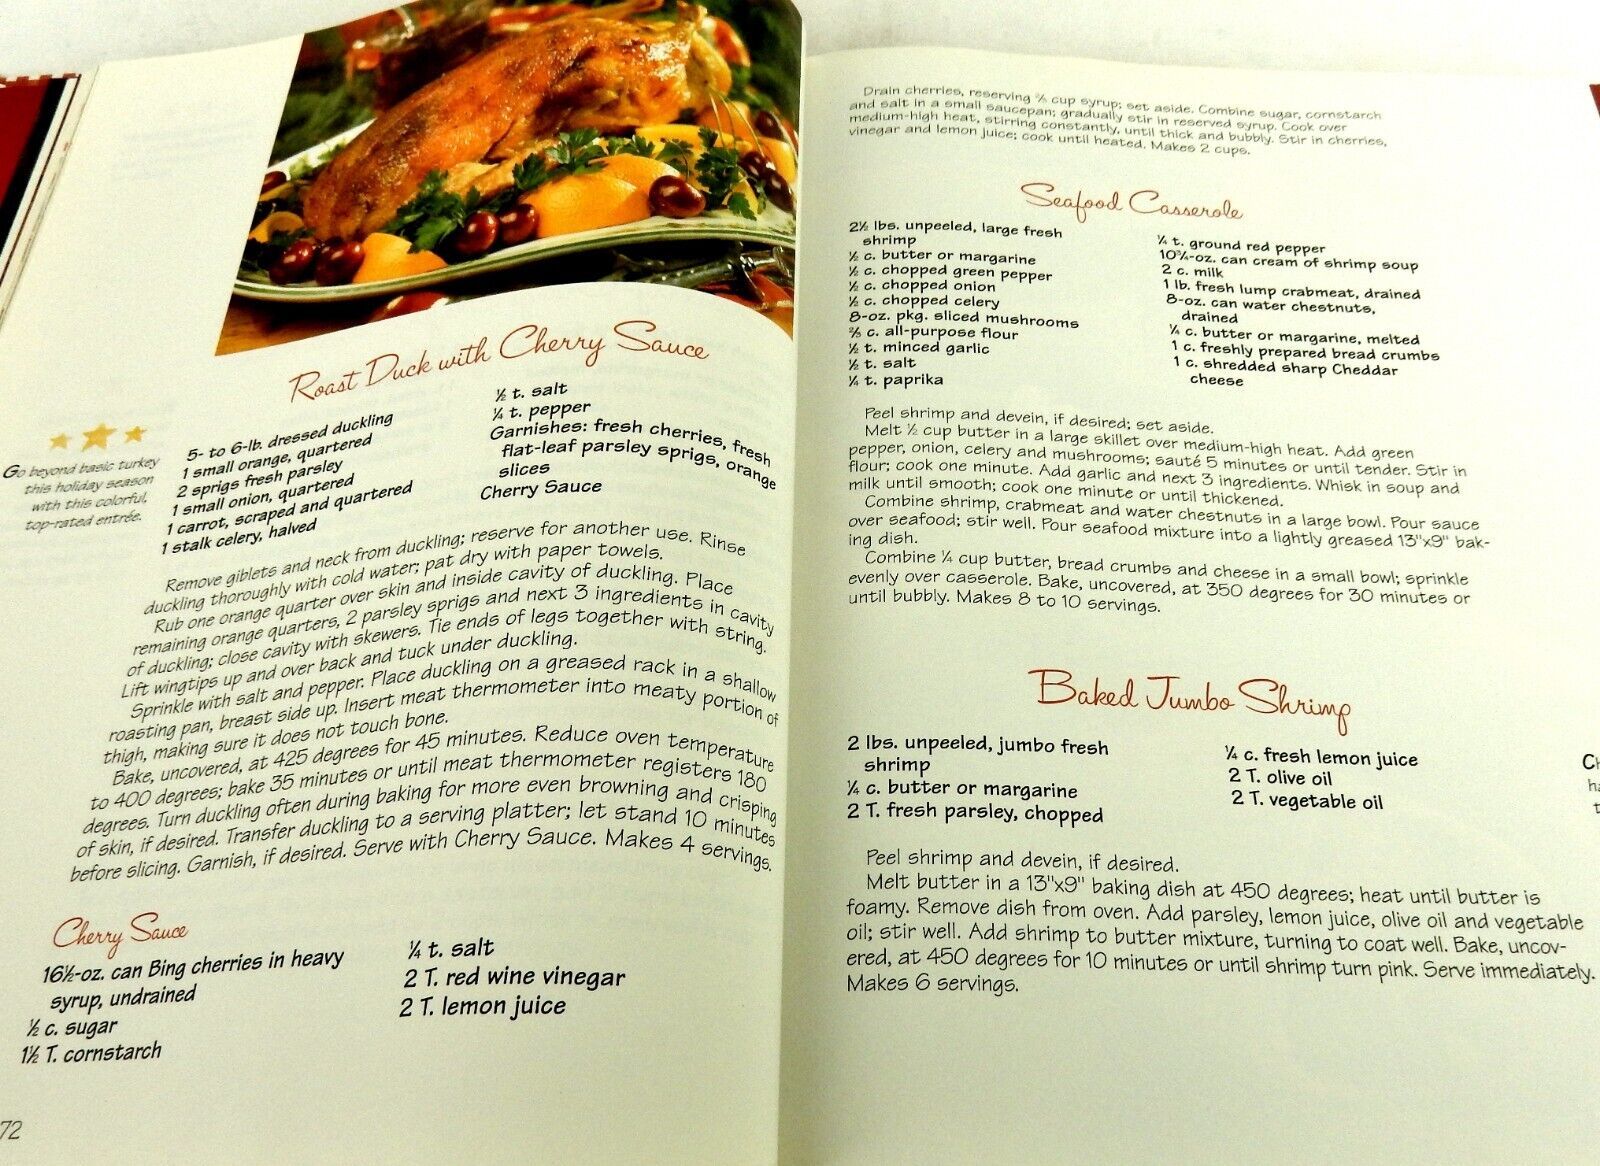 Roast Duck with Cherry Sauce
Go beyond basic turkey
this holiday season
with this colorful,
top-rated entrée.
5- to 6-lb. dressed duckling
1 small orange, quartered
2 sprigs fresh parsley
1 small onion, quartered
1 carrot, scraped and quartered
1 stalk celery, halved
½ t. salt
¼ t. pepper
Garnishes: fresh cherries, fresh
flat-leaf parsley sprigs, orange
slices
Cherry Sauce
Remove giblets and neck from duckling; reserve for another use. Rinse
duckling thoroughly with cold water; pat dry with paper towels.
Rub one orange quarter over skin and inside cavity of duckling. Place
remaining orange quarters, 2 parsley sprigs and next 3 ingredients in cavity
of duckling; close cavity with skewers. Tie ends of legs together with string.
Lift wingtips up and over back and tuck under duckling.
Sprinkle with salt and pepper. Place duckling on a greased rack in a shallow
roasting pan, breast side up. Insert meat thermometer into meaty portion of
thigh, making sure it does not touch bone.
Bake, uncovered, at 425 degrees for 45 minutes. Reduce oven temperature
to 400 degrees; bake 35 minutes or until meat thermometer registers 180
degrees. Turn duckling often during baking for more even browning and crisping
of skin, if desired. Transfer duckling to a serving platter; let stand 10 minutes
before slicing. Garnish, if desired. Serve with Cherry Sauce. Makes 4 servings.
Cherry Sauce
16½-oz. can Bing cherries in heavy
syrup, undrained
½ c. sugar
1½ T. cornstarch
¼ t. salt
2 T. red wine vinegar
2 T. lemon juice
72
Drain cherries, reserving ⅔ cup syrup; set aside. Combine sugar, cornstarch
and salt in a small saucepan; gradually stir in reserved syrup. Cook over
medium-high heat, stirring constantly, until thick and bubbly. Stir in cherries,
vinegar and lemon juice; cook until heated. Makes 2 cups.
Seafood Casserole
2½ lbs. unpeeled, large fresh
shrimp
½ c. butter or margarine
½ c. chopped green pepper
½ c. chopped onion
½ c. chopped celery
8-oz. pkg. sliced mushrooms
⅔ c. all-purpose flour
½ t. minced garlic
½ t. salt
¼ t. paprika
¼ t. ground red pepper
10¾-oz. can cream of shrimp soup
2 c. milk
1 lb. fresh lump crabmeat, drained
8-oz. can water chestnuts,
drained
¼ c. butter or margarine, melted
1 c. freshly prepared bread crumbs
1 c. shredded sharp Cheddar
cheese
Peel shrimp and devein, if desired; set aside.
Melt ½ cup butter in a large skillet over medium-high heat. Add green
pepper, onion, celery and mushrooms; sauté 5 minutes or until tender. Stir in
flour; cook one minute. Add garlic and next 3 ingredients. Whisk in soup and
milk until smooth; cook one minute or until thickened.
Combine shrimp, crabmeat and water chestnuts in a large bowl. Pour sauce
over seafood; stir well. Pour seafood mixture into a lightly greased 13"x9" bak-
ing dish.
Combine ¼ cup butter, bread crumbs and cheese in a small bowl; sprinkle
evenly over casserole. Bake, uncovered, at 350 degrees for 30 minutes or
until bubbly. Makes 8 to 10 servings.
Baked Jumbo Shrimp
2 lbs. unpeeled, jumbo fresh
shrimp
¼ c. butter or margarine
2 T. fresh parsley, chopped
¼ c. fresh lemon juice
2 T. olive oil
2 T. vegetable oil
Peel shrimp and devein, if desired.
Melt butter in a 13"x9" baking dish at 450 degrees; heat until butter is
foamy. Remove dish from oven. Add parsley, lemon juice, olive oil and vegetable
oil; stir well. Add shrimp to butter mixture, turning to coat well. Bake, uncov-
ered, at 450 degrees for 10 minutes or until shrimp turn pink. Serve immediately.
Makes 6 servings.